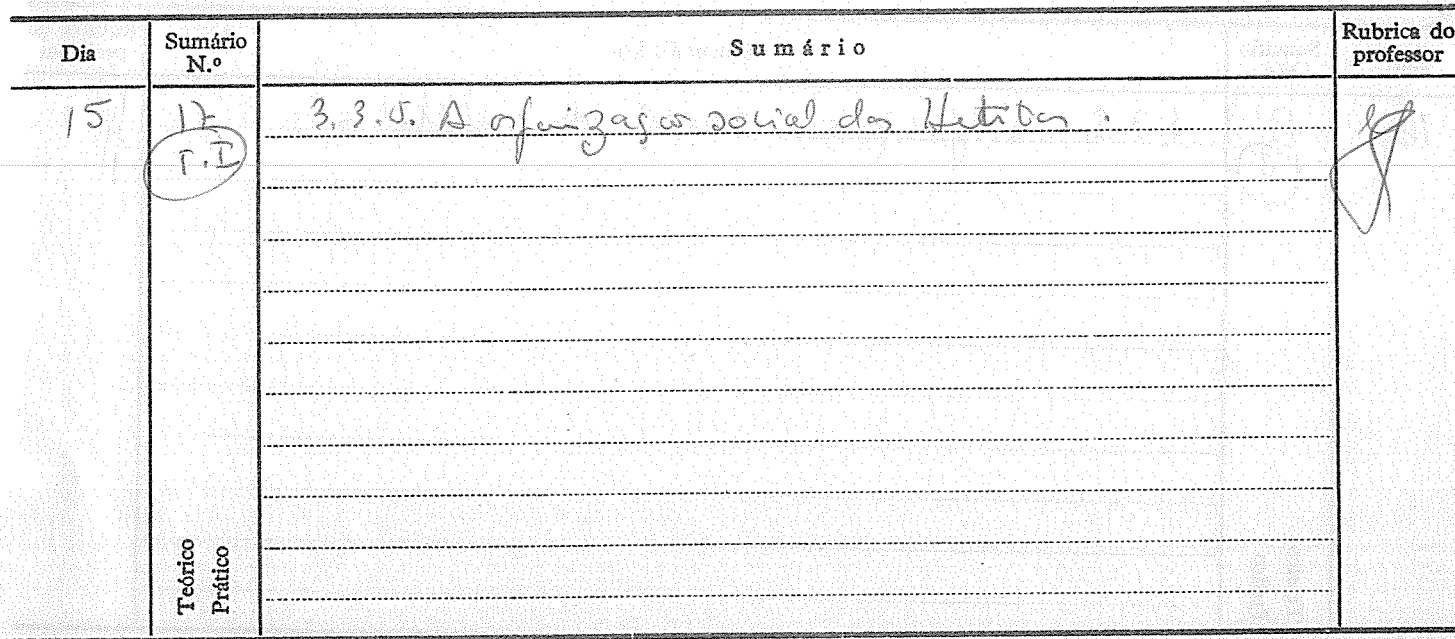 Dia
Sumário N.º
Sumário
Rubrica do professor
15
17
T.I
3.3.5. A organização social dos Hititas.
Teórico
Prático